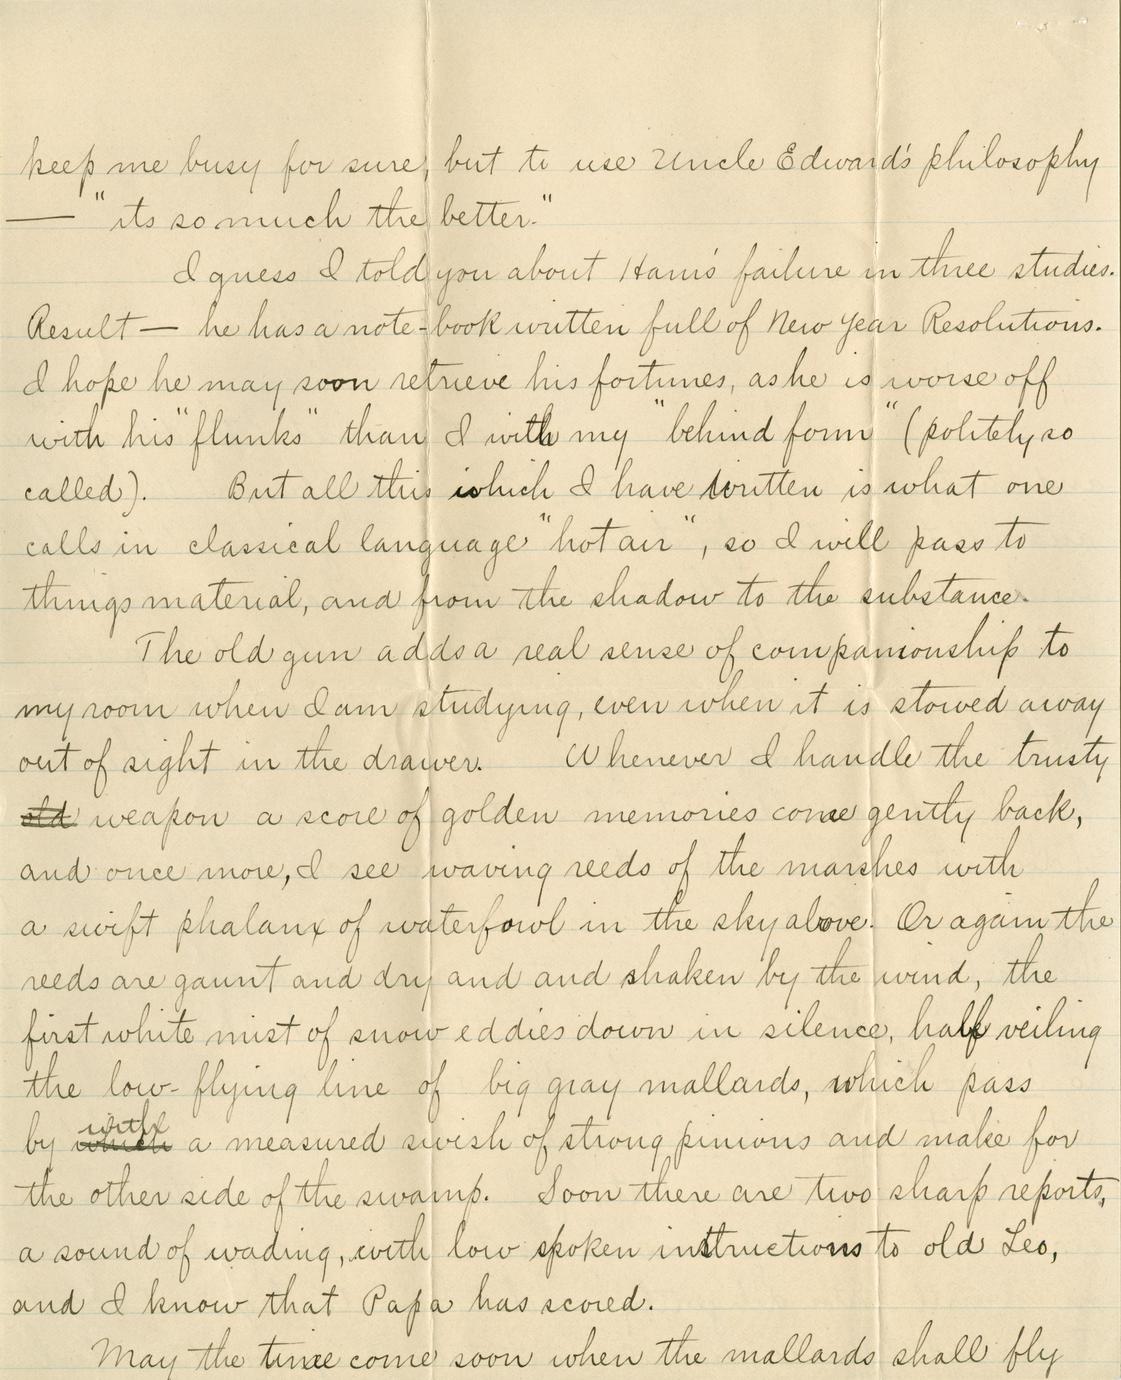 keep me busy for sure, but to use Uncle Edward's philosophy
— "its so much the better."
I guess I told you about Ham's failure in three studies.
Result — he has a note-book written full of New Year Resolutions.
I hope he may soon retrieve his fortunes, as he is worse off
with his "flunks" than I with my "behind form" (politely so
called). But all this which I have written is what one
calls in classical language "hot air", so I will pass to
things material, and from the shadow to the substance.
The old gun adds a real sense of companionship to
my room when I am studying, even when it is stowed away
out of sight in the drawer. Whenever I handle the trusty
old weapon a score of golden memories come gently back,
and once more, I see waving reeds of the marshes with
a swift phalanx of waterfowl in the sky above. Or again the
reeds are gaunt and dry and and shaken by the wind, the
first white mist of snow eddies down in silence, half veiling
the low-flying line of big gray mallards, which pass
with
by which a measured swish of strong pinions and make for
the other side of the swamp. Soon there are two sharp reports,
a sound of wading, with low spoken instructions to old Leo,
and I know that Papa has scored.
May the time come soon when the mallards shall fly